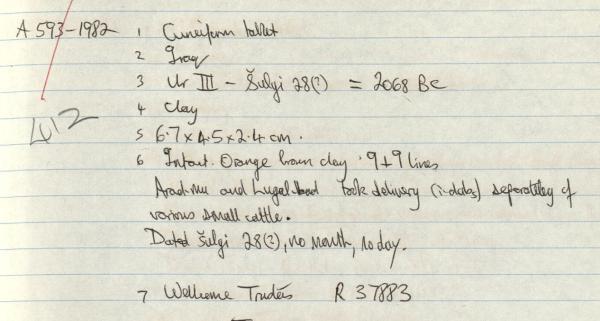 A 593-1982 1 Cuneiform tablet
2 Iraq
3 Ur III - Šulgi 28(?) = 2068 BC
4 Clay
412
5 6.7 x 4.5 x 2.4 cm.
6 Intact. Orange brown clay. 9+9 lines
Aradmu and Lugal took delivery (i-dab5) seperately of
various small cattle.
Dated Šulgi 28(?), no month, no day.
7 Wellcome Trustees R 37883